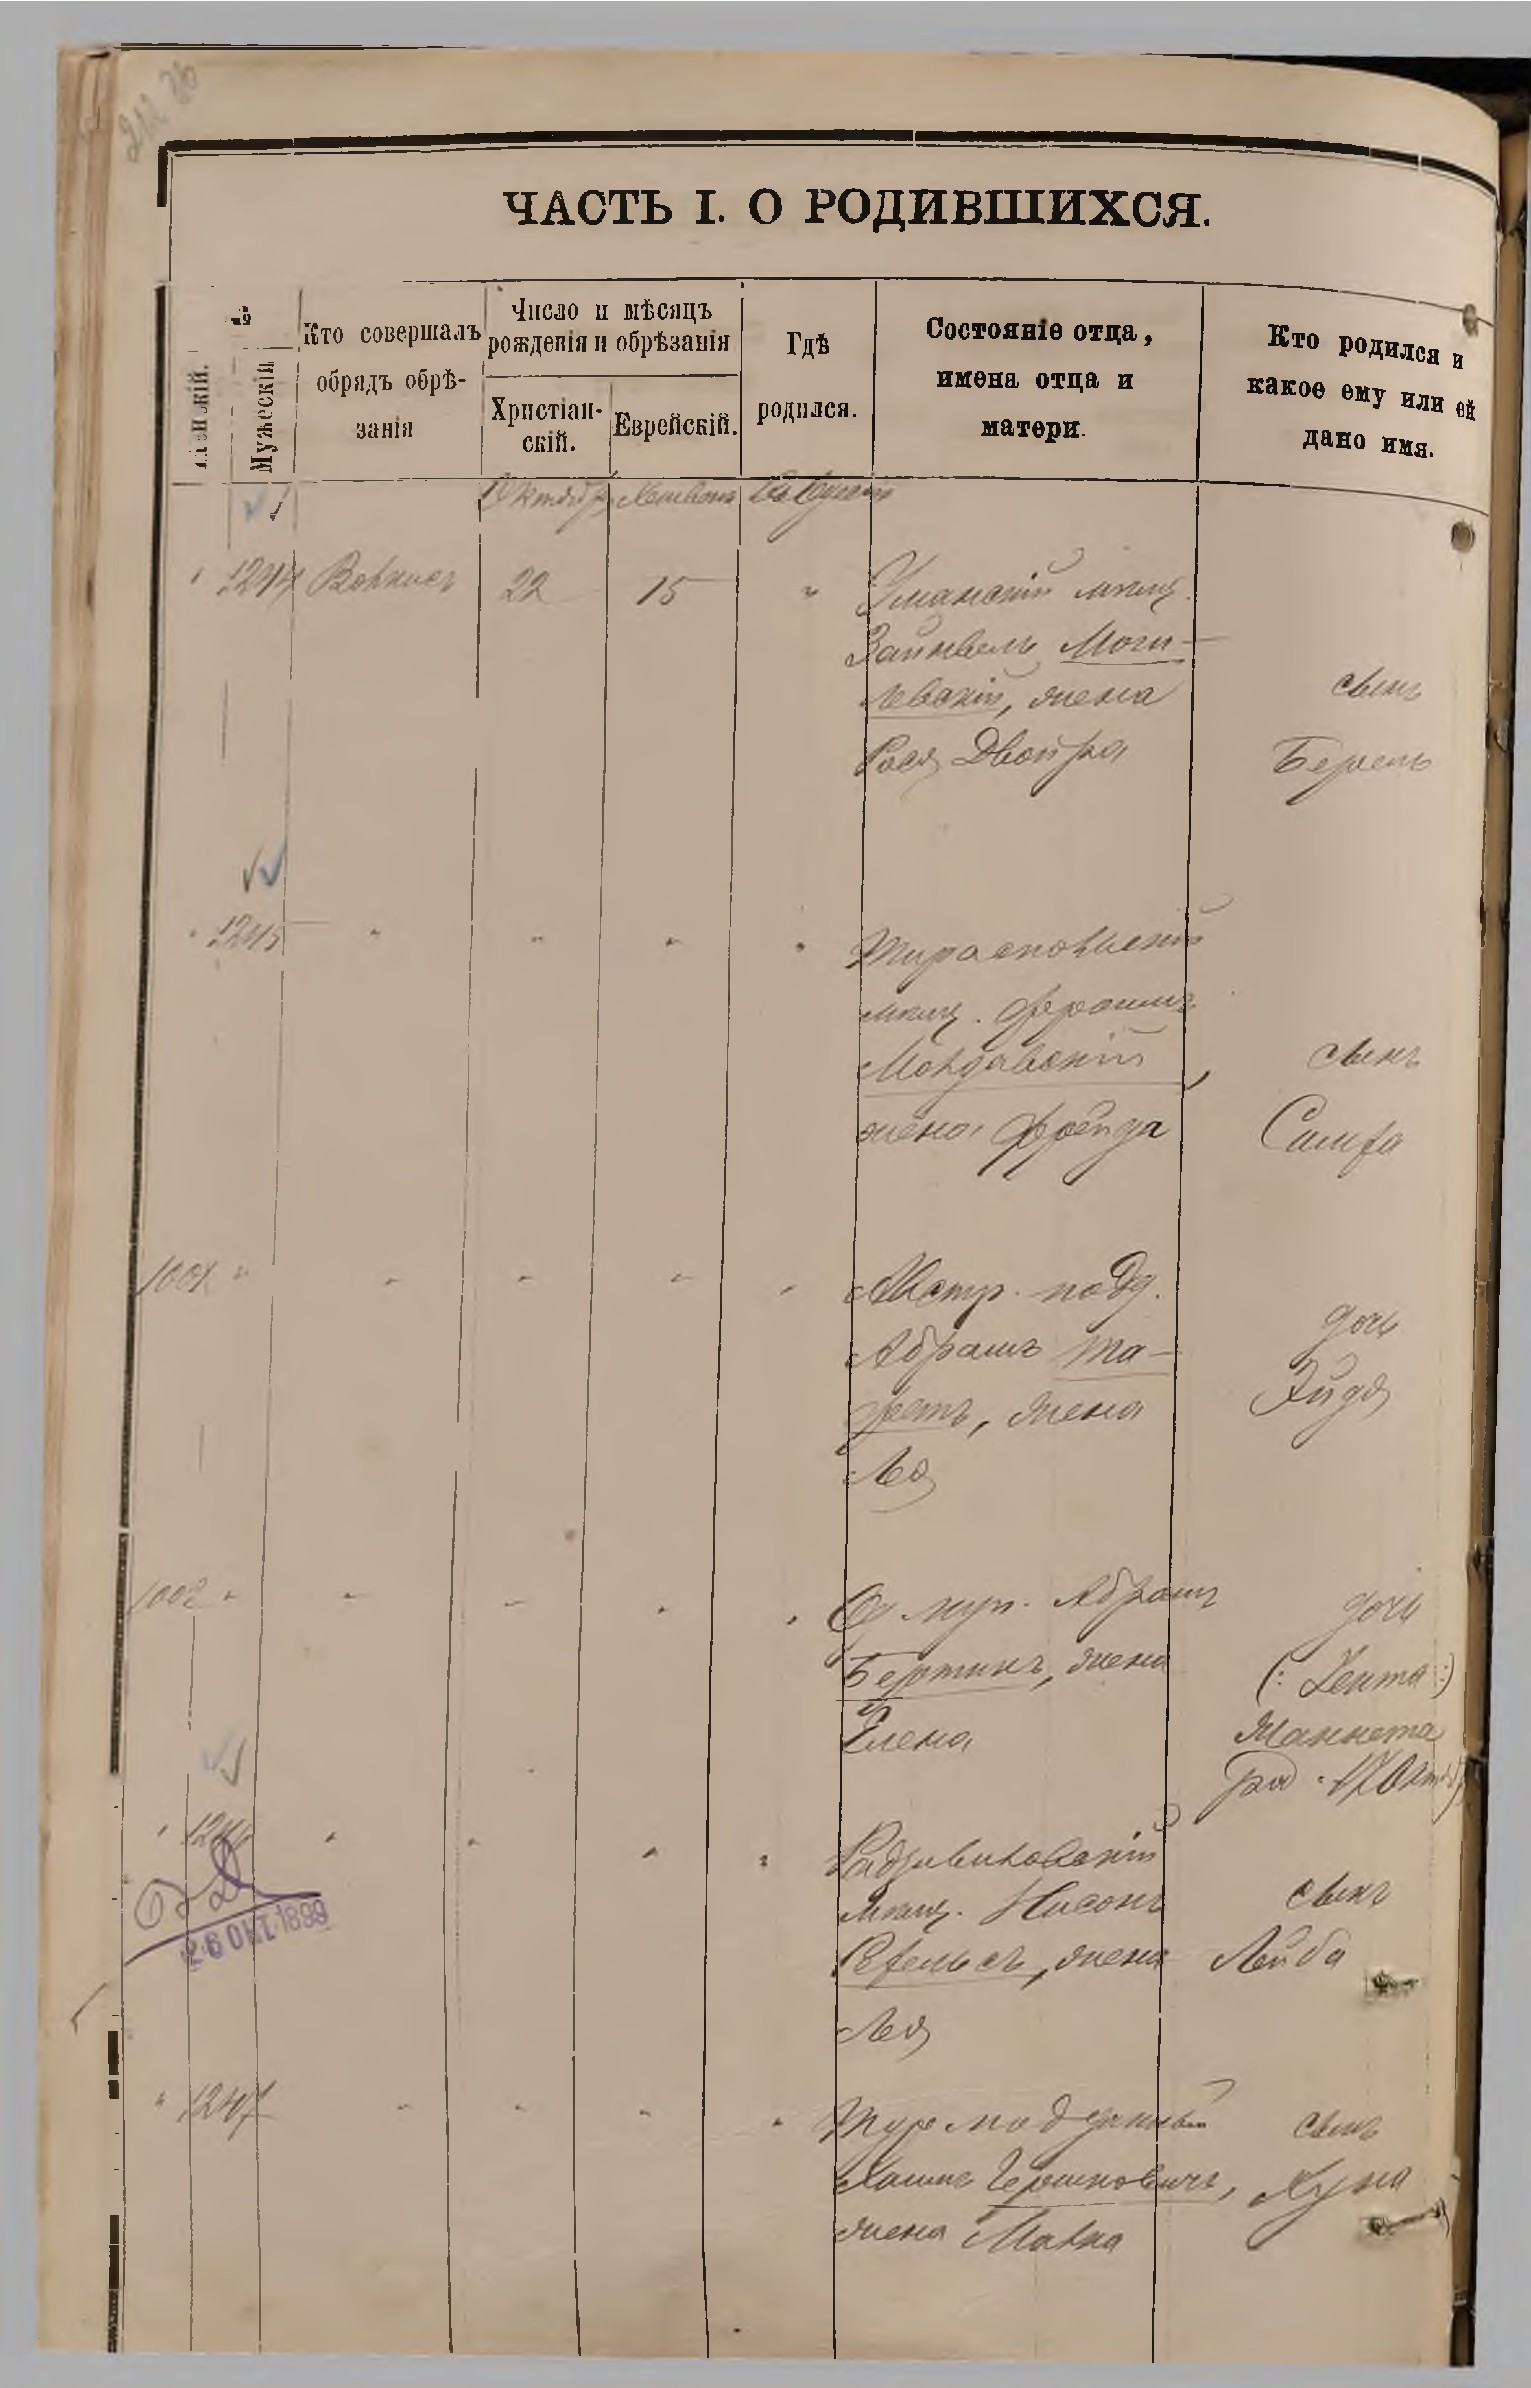 212 36
ЧАСТЬ I. О РОДИВШИХСЯ.
Женскій.
№
Мужескій
Кто совершалъ
обрядъ обрѣ-
занія
Число и мѣсяцъ
рожденія и обрѣзанія
Христіан-
скій.
Еврейскій.
Гдѣ
родился.
Состояніе отца,
имена отца и
матери.
Кто родился и
какое ему или ей
дано имя.
Октябр. Хешвонъ
" 1244 22 15 " Уманскій мѣщ.
Зайнвелъ Моги-
левскій, жена
Рося Двойра
сынъ
Берелъ
" 1245 " " " " Тираспольскій
мѣщ. Фроимъ
Молдавскій,
жена Фрейда
сынъ
Симха
1001 " " " " " Австр. подд.
Абрамъ Та-
жена
Лея
дочь
Эйдя
1002 " " " " " Од. куп. Абрамъ
Бертинъ, жена
Елена
дочь
(: Цента :)
Жаннета
род. 17 Октяб.
" 1246 " " " " Радзивиловскій
мѣщ. Нисонъ
жена
Лея
сынъ
Лейба
26 ОКТ. 1899
" 1247 " " " " Тур. подданный
Хаимъ Гершковичъ,
жена Малка
сынъ
Куна